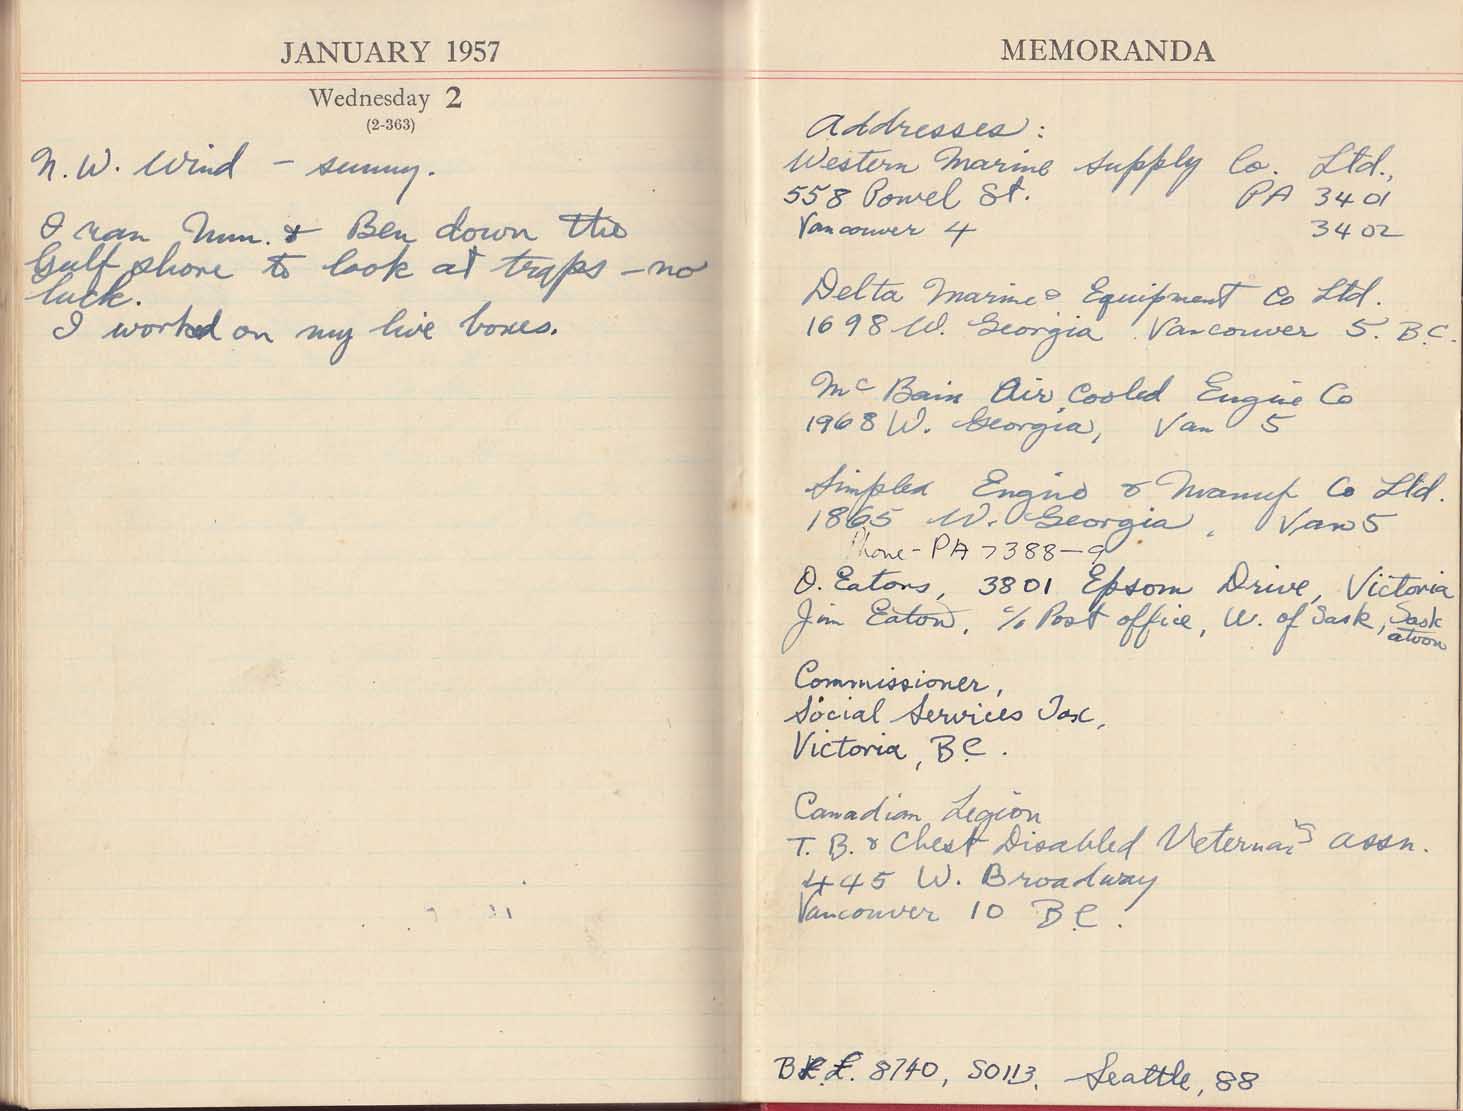 JANUARY 1957
Wednesday 2
(2-363)
N.W. Wind - sunny.
I ran Mum. & Ben down the
Gulf shore to look at traps - no
luck.
I worked on my live boxes.
MEMORANDA
Addresses:
Western Marine Supply Co. Ltd.,
558 Powel St. PA 3401
Vancouver 4 3402
Delta Marine Equipment Co Ltd.
1698 W. Georgia Vancouver 5. B.C.
Mc Bain Air Cooled Engine Co
1968 W. Georgia, Van 5
Simplex Engine & Manuf Co Ltd.
1865 W. Georgia, Van 5
Phone - PA 7388-9
O. Eatons, 3801 Epsom Drive, Victoria
Jim Eaton, c/o Post office, U. of Sask, Sask
atoon
Commissioner,
Social Services Tax,
Victoria, BC.
Canadian Legion
T. B. & Chest Disabled Veternan's Assn.
445 W. Broadway
Vancouver 10 BC.
8740, SO113, Seattle, 88